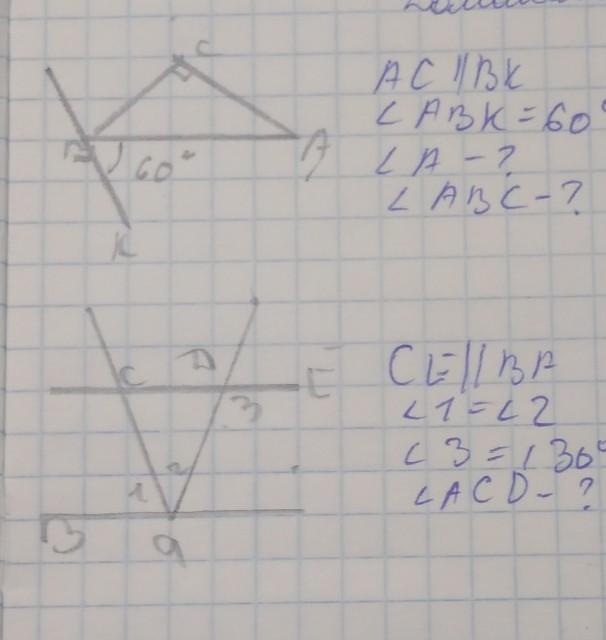 C
AC || BK
∠ABK = 60°
B
60°
A
∠A - ?
∠ABC - ?
K
C
D
E
CE || BF
∠1 = ∠2
3
∠3 = 130°
2
1
∠ACD - ?
B
a